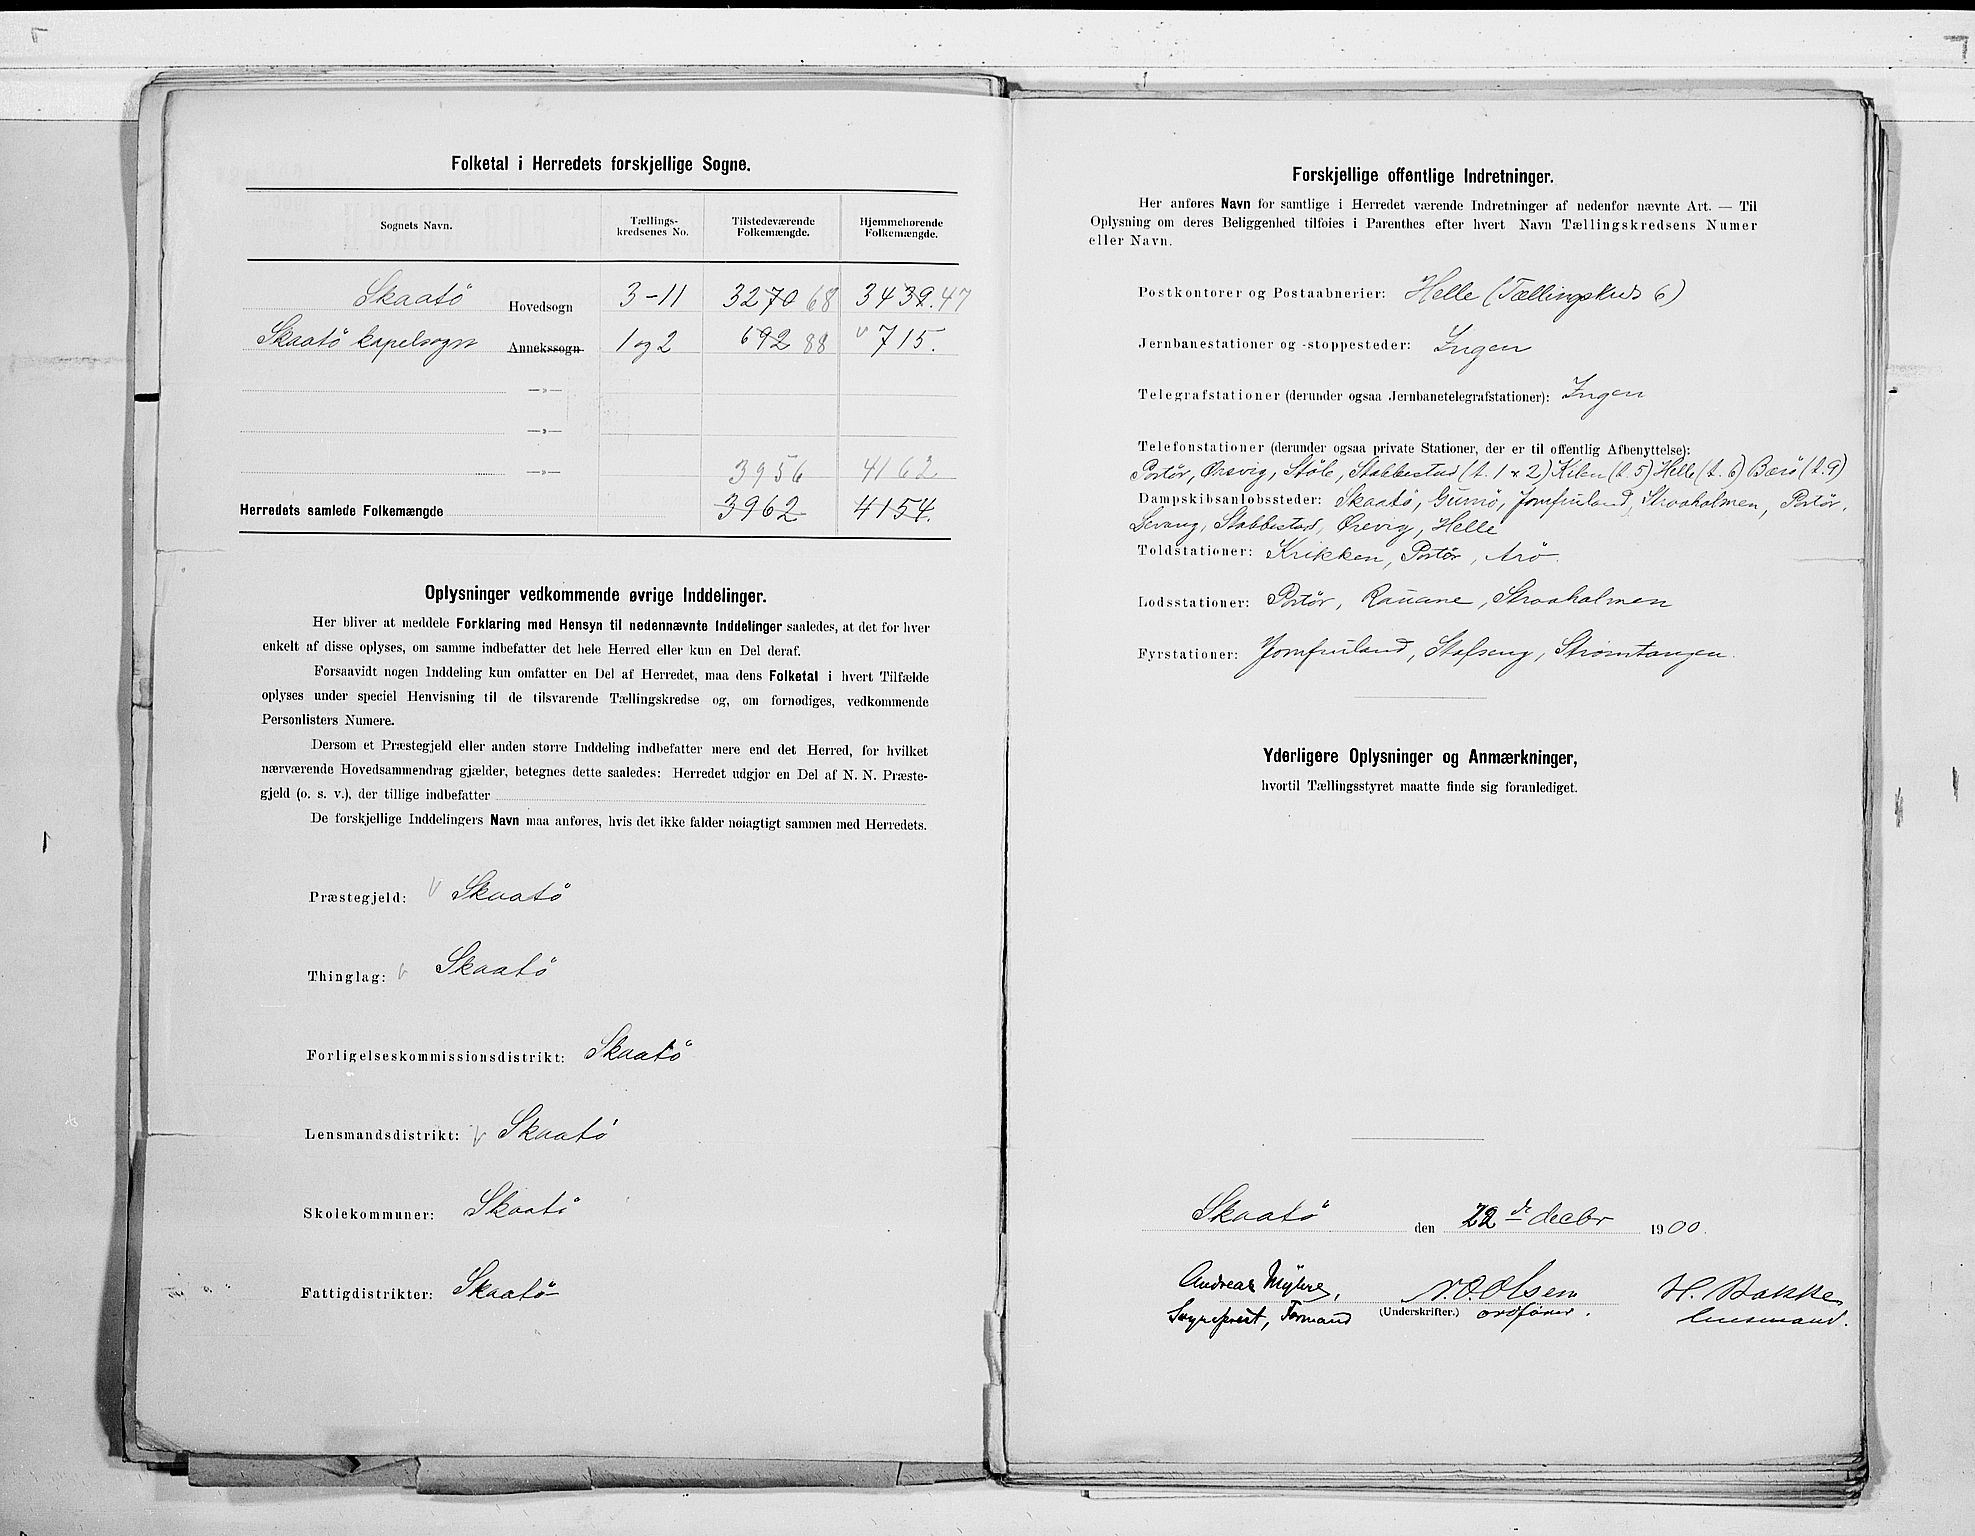 Folketal i Herredets forskjellige Sogne.
Sognets Navn.
Tællings-
kredsenes No.
Tilstedeværende
Folkemængde.
Hjemmehørende
Folkemængde.
Skaatö Hovedsogn 3-11 3270 68 3439. 47
Skaatö kapelsogn Annekssogn 1 og 2 692 88 715.
—»—
—»—
—»— 3956 4162
Herredets samlede Folkemængde 3962 4154.
Oplysninger vedkommende øvrige Inddelinger.
Her bliver at meddele Forklaring med Hensyn til nedennævnte Inddelinger saaledes, at det for hver
enkelt af disse oplyses, om samme indbefatter det hele Herred eller kun en Del deraf.
Forsaavidt nogen Inddeling kun omfatter en Del af Herredet, maa dens Folketal i hvert Tilfælde
oplyses under speciel Henvisning til de tilsvarende Tællingskredse og, om fornødiges, vedkommende
Personlisters Numere.
Dersom et Præstegjeld eller anden større Inddeling indbefatter mere end det Herred, for hvilket
nærværende Hovedsammendrag gjælder, betegnes dette saaledes: Herredet udgjør en Del af N. N. Præste-
gjeld (o. s. v.), der tillige indbefatter
De forskjellige Inddelingers Navn maa anføres, hvis det ikke falder nøiagtigt sammen med Herredets.
Præstegjeld: Skaatö
Thinglag: Skaatö
Forligelseskommissionsdistrikt: Skaatö
Lensmandsdistrikt: Skaatö
Skolekommuner: Skaatö
Fattigdistrikter: Skaatö
Forskjellige offentlige Indretninger.
Her anføres Navn for samtlige i Herredet værende Indretninger af nedenfor nævnte Art. — Til
Oplysning om deres Beliggenhed tilføies i Parenthes efter hvert Navn Tællingskredsens Numer
eller Navn.
Postkontorer og Postaabnerier: Helle (Tællingskreds 6)
Jernbanestationer og -stoppesteder: Ingen
Telegrafstationer (derunder ogsaa Jernbanetelegrafstationer): Ingen
Telefonstationer (derunder ogsaa private Stationer, der er til offentlig Afbenyttelse):
Portör, Örevig, Støle, Stabbestad (t. 1 & 2) Kilen (t. 5) Helle (t. 6) Bærö (t. 9)
Dampskibsanløbssteder: Skaatö, Gumö, Jomfruland, Straaholmen, Portör,
Levang, Stabbestad, Örevig, Helle
Toldstationer: Krikken, Portör, Arö.
Lodsstationer: Portör, Rauane, Straaholmen
Fyrstationer: Jomfruland, Stafseng, Strömtangen.
Yderligere Oplysninger og Anmærkninger,
hvortil Tællingsstyret maatte finde sig foranlediget.
Skaatö den 22de decbr 1900.
Andreas Myhre, N. O. Olsen H. Bakke
Sogneprest, Formand (Underskrifter.) ordförer. lensmand.